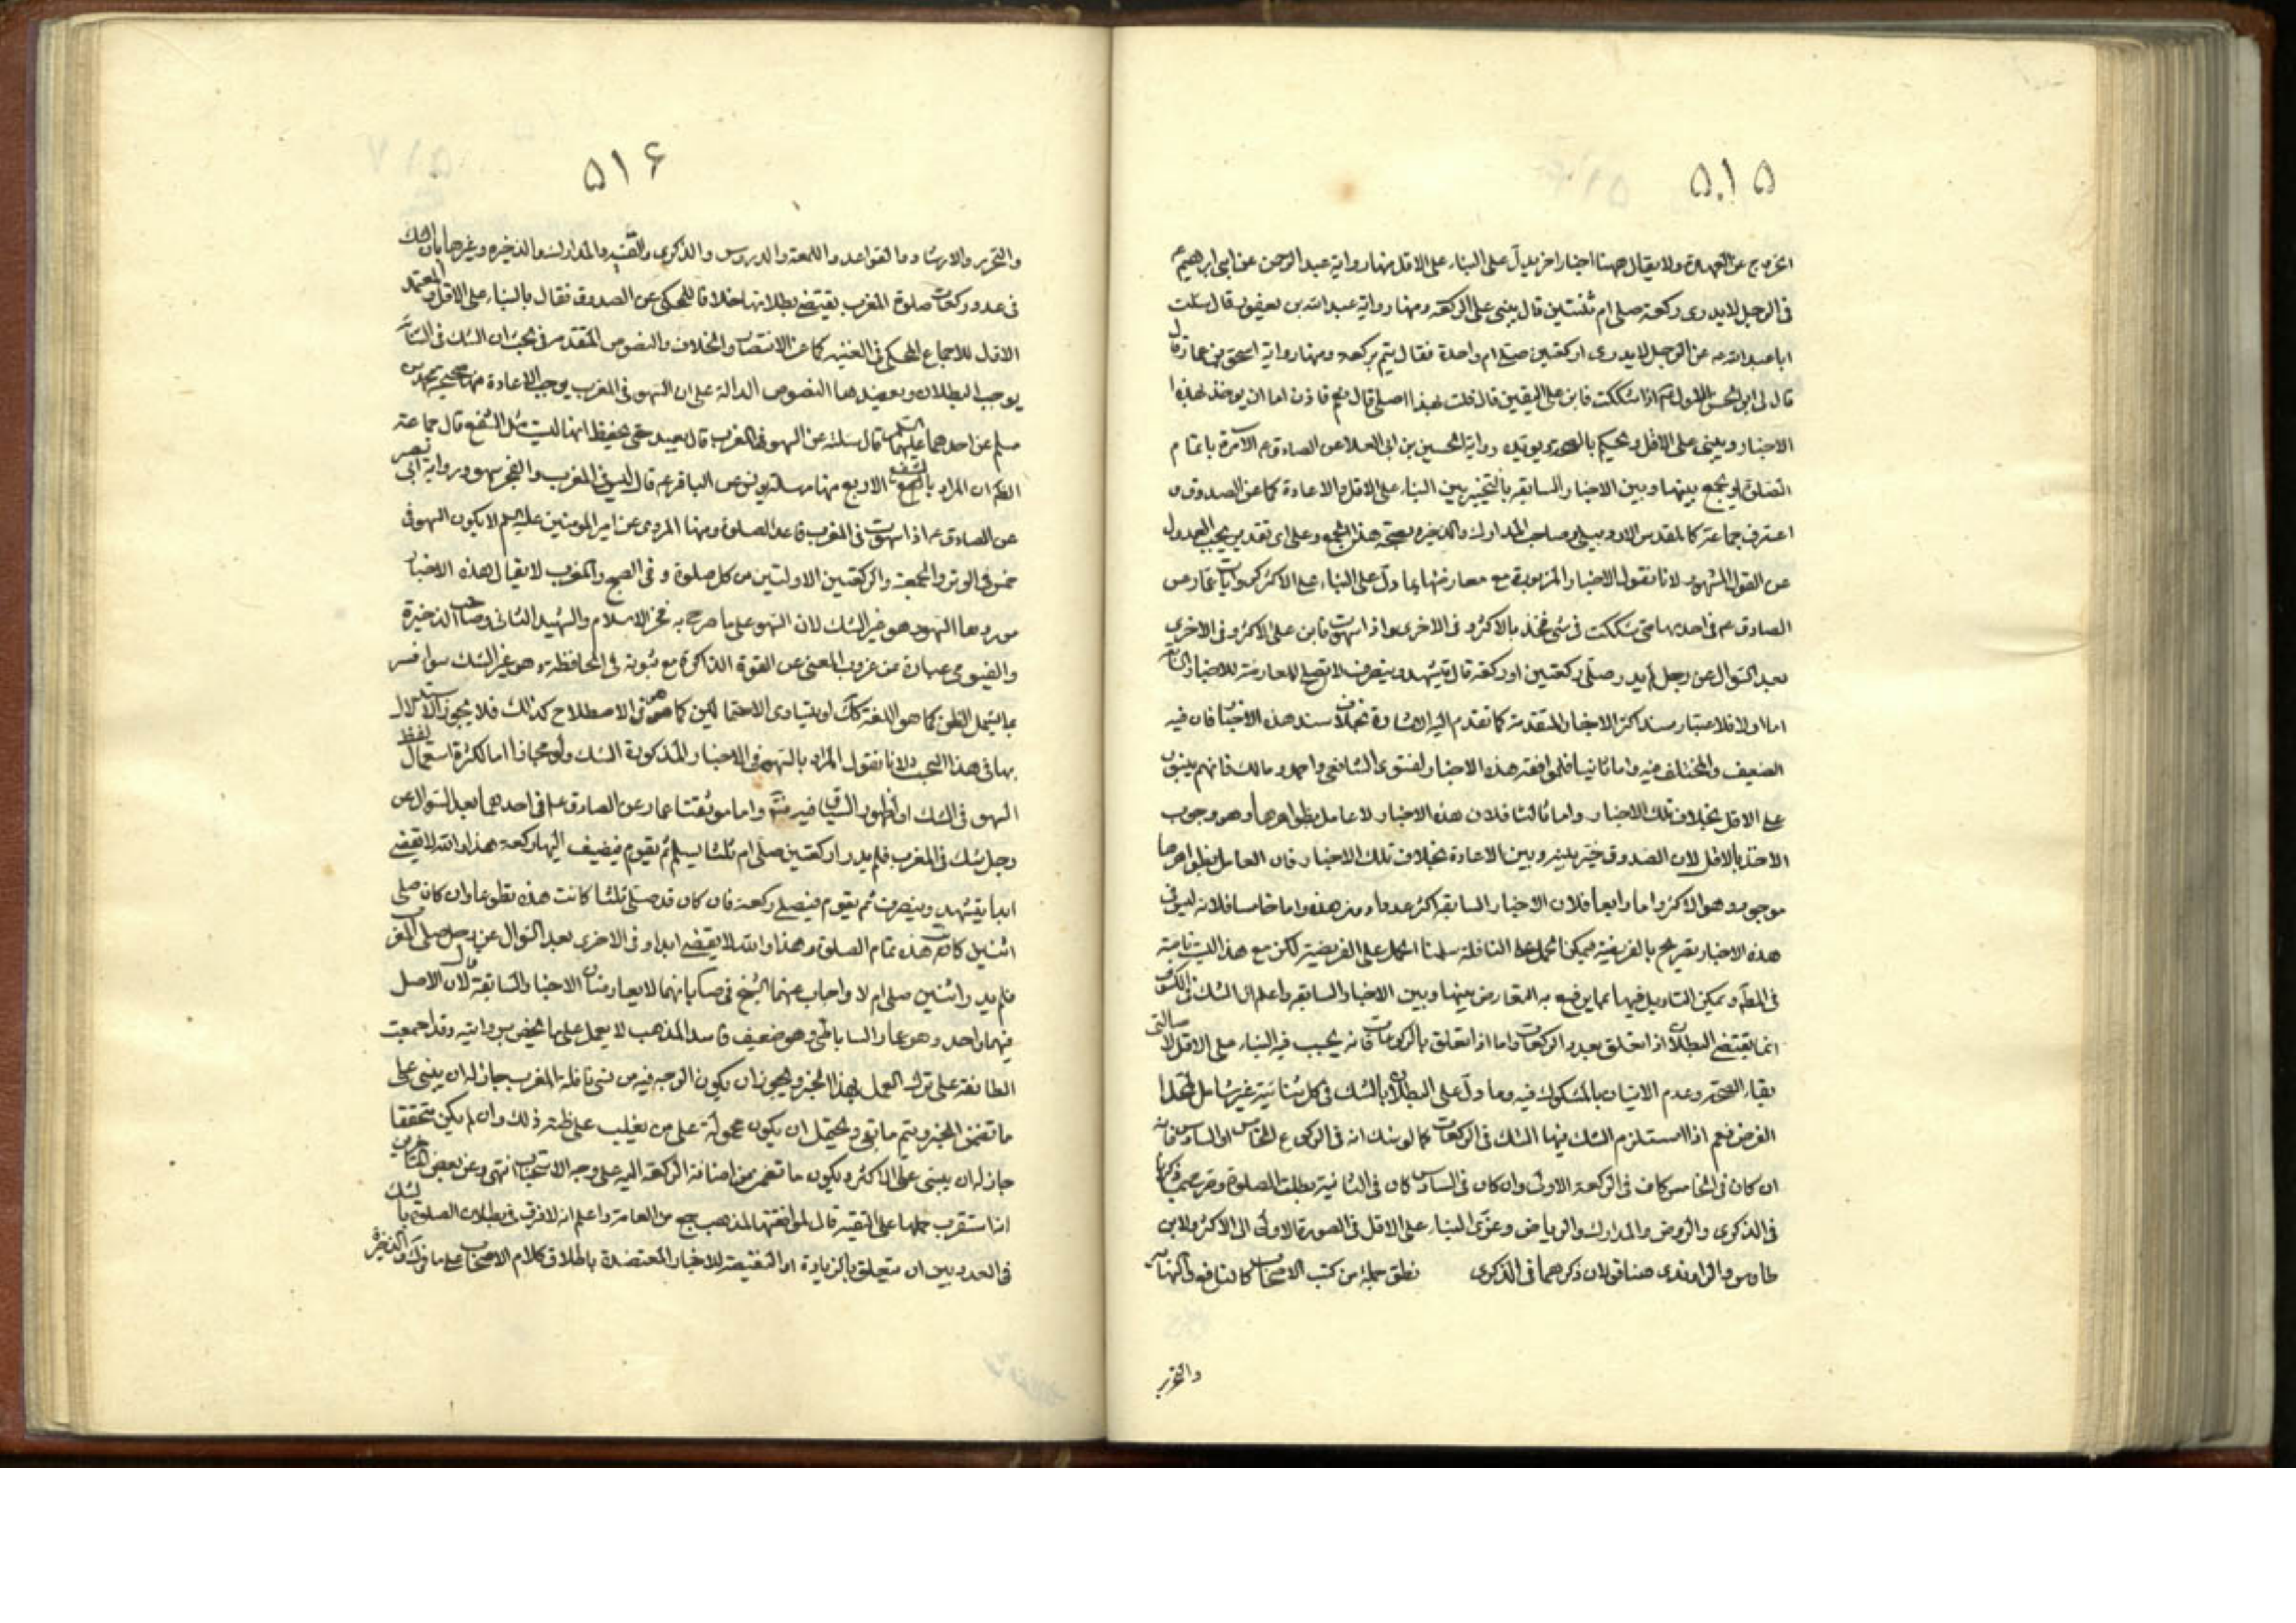 ۵۱۵
الخروج عن العهدة ولا يقال ههنا اخبار اخر يدل على البناء على الاقل منها رواية عبد الرحمن عن ابى ابرهيم ع
فى الرجل لا يدرى ركعة صلى ام ثنتين قال يبنى على الركعة ومنها رواية عبد الله بن يعفور قال سئلت
ابا عبد الله ع عن الرجل لا يدرى اركعتين صلى ام واحدة فقال يتم بركعة ومنها رواية اسحق بن عمار قال
قال لى ابو الحسن الاول ع اذا شككت فابن على اليقين قال قلت هذا اصل قال نعم فاذن اما ان يوخذ بهذه
الاخبار ويبنى على الاقل ويحكم بالصحة رواية الحسين بن ابى العلا عن الصادق ع الآمرة باتمام
الصلوة او يجمع بينها وبين الاخبار السابقة بالتخيير بين البناء على الاقل والاعادة كما عن الصدوق و
اعترف جماعة كالمقدس الاردبيلى وصاحب المدارك والذخيرة بصحة هذا الجمع وعلى اى تقدير يجب العدول
عن القول المشهور لانا نقول الاخبار المزبورة مع معارضتها بما دل على البناء على الاكثر كروايات عمار عن
الصادق ع فى احديها متى شككت فى شئ فخذ بالاكثر وفى الاخرى واذا سهوت فابن على الاكثر وفى الاخرى
بعد السؤال عن رجل لم يدر صلى ركعتين او ركعة قال يتشهد وينصرف لا تصلح للمعارضة للاخبار السابقة
اما اولا فلاعتبار سند اكثر الاخبار المتقدمة كما تقدم اليه الاشارة بخلاف سند هذه الاخبار فان فيه
الضعيف والمختلف فيه واما ثانيا فلموافقة هذه الاخبار لفتوى الشافعى واحمد ومالك فانهم يبنون
على الاقل بخلاف تلك الاخبار واما ثالثا فلان هذه الاخبار لا عامل بظواهرها وهو وجوب
الاخذ بالاقل لان الصدوق خير بينه وبين الاعادة بخلاف تلك الاخبار فان العامل بظواهرها
موجود وهو الاكثر واما رابعا فلان الاخبار السابقة اكثر عددا من هذه واما خامسا فلانه ليس فى
هذه الاخبار تصريح بالفريضة فيمكن الحمل على النافلة سلمنا الحمل على الفريضة لكن مع هذا ليست ناصة
فى المطلب ويمكن التاويل فيها بما يرفع به التعارض بينها وبين الاخبار السابقة واعلم ان الشك فى الكسوف
انما يقتضى البطلان اذا تعلق بعدد الركعات واما اذا تعلق بالركوعات فانه يجب فيه البناء على الاقل لاصالتى
بقاء الصحة وعدم الاتيان بالمشكوك فيه وما دل على البطلان بالشك فى كل ثنائية غير شامل لهذا
الفرض نعم اذا استلزم الشك فيها الشك فى الركعات كما لو شك انه فى الركوع الخامس او السادس فانه
ان كان فى الخامس كان فى الركعة الاولى وان كان فى السادس كان فى الثانية بطلت الصلوة
فى الذكرى والروض والمدارك والرياض وعزى البناء على الاقل فى الصورة الاولى الى الاكثر ولابن
طاوس والراوندى هنا قولان ذكرهما فى الذكرى نطق جملة من كتب الاصحاب كالنافع والنهاية
والتحرير
۵۱۶
والتحرير والارشاد والقواعد واللمعة والدروس والذكرى والمدارك والذخيرة وغيرها بان الشك
فى عدد ركعات صلوة المغرب يقتضى بطلانها خلافا للمحكى عن الصدوق فقال بالبناء على الاقل والمعتمد
الاقل للاجماع المحكى فى الغنية كما عن الانتصار والخلاف والنصوص المتقدمة فى بحث ان الشك فى الثنائية
يوجب البطلان ويعضدها النصوص الدالة على ان السهو فى المغرب يوجب الاعادة منها صحيحة محمد بن
مسلم عن احدهما عليهما السلم قال سئلته عن السهو فى المغرب قال يعيد حتى يحفظ انها ليست مثل الشفع قال جماعة
الظم ان المراد بالشفع الاربع منها مرسلة يونس عن الباقر ع قال ليس فى المغرب والفجر سهو ورواية ابى بصير
عن الصادق ع اذا سهوت فى المغرب فاعد الصلوة ومنها المروى عن امير المومنين عليه السلم لا يكون السهو فى
خمس فى الوتر والجمعة والركعتين الاولتين من كل صلوة وفى الصبح والمغرب لا يقال هذه الاخبار
موردها السهو وهو غير الشك لان السهو على ما صرح به فخر الاسلام والشهيد الثانى وصاحب الذخيرة
والفيومى عبارة عن عزوب المعنى عن القوة الذاكرة مع ثبوته فى الحافظة وهو غير الشك سواء فسر
بما يشمل الظن كما هو اللغة كك او بتساوى الاحتمالين كما هو فى الاصطلاح كذلك فلا يجوز الاستدلال
بها فى هذا البحث لانا نقول المراد بالسهو فى الاخبار المذكورة الشك ولو مجازا اما لكثرة استعمال لفظ
السهو فى الشك او لظهور السياق فيه واما موثقتا عمار عن الصادق ع فى احدهما بعد السؤال عن
رجل شك فى المغرب فلم يدر اركعتين صلى ام ثلثا يسلم ثم يقوم فيضيف اليها ركعة هذا والله لا يقضى
ابدا يتشهد وينصرف ثم يقوم فيصلى ركعة فان كان قد صلى ثلثا كانت هذه تطوعا وان كان صلى
اثنتين كانت هذه تمام الصلوة وهذا والله لا يقضى ابدا وفى الاخرى بعد السؤال عن رجل صلى المغرب
فلم يدر اثنتين صلى ام لا واجاب عنهما الشيخ بانهما لا يعارضان الاخبار السابقة قال لان الاصل
فيهما واحد وهو عمار الساباطى وهو ضعيف فاسد المذهب لا يعمل على ما يختص بروايته وقد اجمعت
الطائفة على ترك العمل بهذا الخبر ويجوز ان يكون الوجه فيه من نسى نافلة المغرب جاز له ان يبنى على
ما تضمن الخبر ويتم ما بقى ويحتمل ان يكون محمولة على من يغلب على ظنه ذلك وان لم يكن متحققا
جاز له ان يبنى على الاكثر ويكون ما تضمن من اضافة الركعة اليه على وجه الاستحباب انتهى وعن بعض المتاخرين
انه استقرب حملها على التقية قال لموافقتها لمذهب جمع من العامة واعلم انه لا فرق فى بطلان الصلوة بالشك
فى العدد بين ان يتعلق بالزيادة او النقيصة للاخبار المعتضدة باطلاق كلام الاصحاب على ما فى والذخيرة